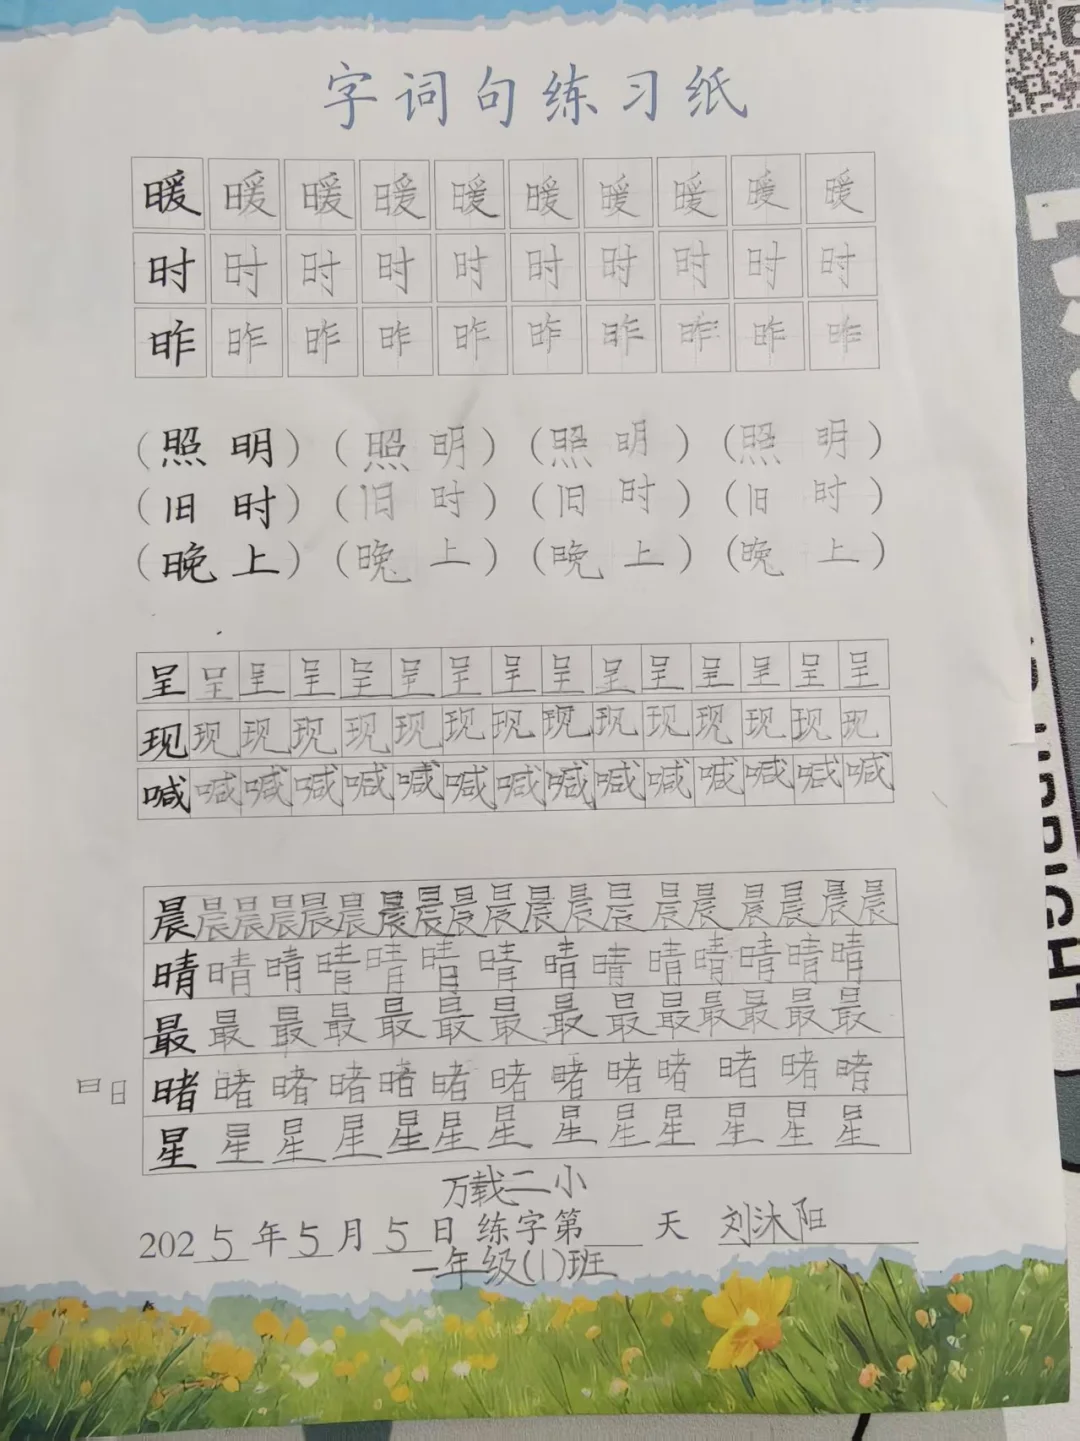 字词句练习纸
暖暖暖暖暖暖暖暖暖暖
时时时时时时时时时时
昨昨昨昨昨昨昨昨昨昨
(照明)(照明)(照明)(照明)
(旧时)(旧时)(旧时)(旧时)
(晚上)(晚上)(晚上)(晚上)
呈呈呈呈呈呈呈呈呈呈呈呈呈呈呈
现现现现现现现现现现现现现现现
喊喊喊喊喊喊喊喊喊喊喊喊喊喊喊
晨晨晨晨晨晨晨晨晨晨晨晨晨晨晨晨晨晨
晴晴晴晴晴晴晴晴晴晴晴晴晴晴
最最最最最最最最最最最最最最
曰日 暏暏暏暏暏暏暏暏暏暏暏暏暏
星星星星星星星星星星星星星
万载二小
2025年5月5日 练字第___天 刘沐阳
一年级(1)班